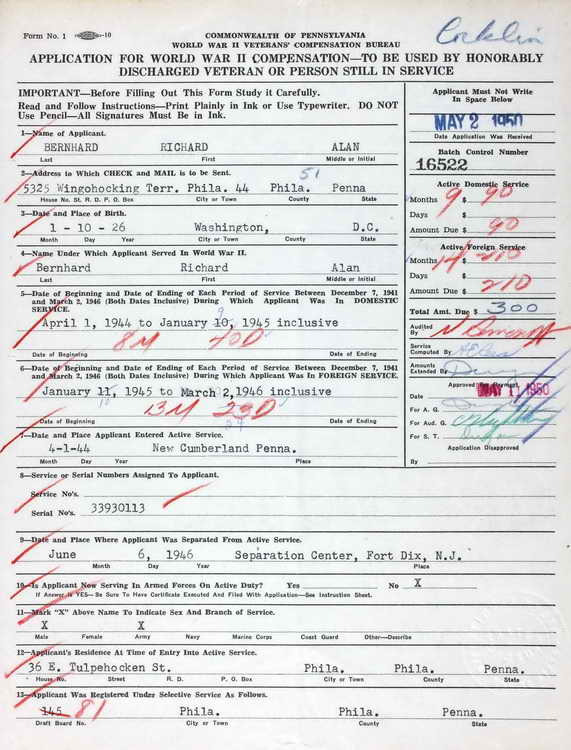 Form No. 1 -10
Conklin
COMMONWEALTH OF PENNSYLVANIA
WORLD WAR II VETERANS' COMPENSATION BUREAU
APPLICATION FOR WORLD WAR II COMPENSATION—TO BE USED BY HONORABLY
DISCHARGED VETERAN OR PERSON STILL IN SERVICE
IMPORTANT—Before Filling Out This Form Study it Carefully.
Read and Follow Instructions—Print Plainly in Ink or Use Typewriter. DO NOT
Use Pencil—All Signatures Must Be in Ink.
1—Name of Applicant.
BERNHARD RICHARD ALAN
Last First Middle or Initial
2—Address to Which CHECK and MAIL is to be Sent.
51
5325 Wingohocking Terr. Phila. 44 Phila. Penna
House No. St. R. D. P. O. Box City or Town County State
3—Date and Place of Birth.
1 - 10 - 26 Washington, D.C.
Month Day Year City or Town County State
4—Name Under Which Applicant Served In World War II.
Bernhard Richard Alan
Last First Middle or Initial
5—Date of Beginning and Date of Ending of Each Period of Service Between December 7, 1941
and March 2, 1946 (Both Dates Inclusive) During Which Applicant Was In DOMESTIC
SERVICE.
9
April 1, 1944 to January 10, 1945 inclusive
8M 40D
Date of Beginning Date of Ending
6—Date of Beginning and Date of Ending of Each Period of Service Between December 7, 1941
and March 2, 1946 (Both Dates Inclusive) During Which Applicant Was In FOREIGN SERVICE.
January 11, 1945 to March 2, 1946 inclusive
10
13M 23D
Date of Beginning Date of Ending
7—Date and Place Applicant Entered Active Service.
4-1-44 New Cumberland Penna.
Month Day Year Place
8—Service or Serial Numbers Assigned To Applicant.
Service No's.
Serial No's. 33930113
9—Date and Place Where Applicant Was Separated From Active Service.
June 6, 1946 Separation Center, Fort Dix, N.J.
Month Day Year Place
10—Is Applicant Now Serving In Armed Forces On Active Duty? Yes No X
If Answer is YES—Be Sure To Have Certificate Executed And Filed With Application—See Instruction Sheet.
11—Mark "X" Above Name To Indicate Sex and Branch of Service.
X X
Male Female Army Navy Marine Corps Coast Guard Other—Describe
12—Applicant's Residence At Time of Entry Into Active Service.
36 E. Tulpehocken St. Phila. Phila. Penna.
House No. Street R. D. P. O. Box City or Town County State
13—Applicant Was Registered Under Selective Service As Follows.
145 81 Phila. Phila. Penna.
Draft Board No. City or Town County State
Applicant Must Not Write
In Space Below
MAY 2 1950
Date Application Was Received
Batch Control Number
16522
Active Domestic Service
Months 9 $ 90
Days $
Amount Due $ 90
Active Foreign Service
Months 14 $ 210
Days $
Amount Due $ 210
Total Amt. Due $ 300
Audited
By
Service
Computed By
Amounts
Extended By
Approved For Payment
Date MAY 11 1950
For A. G.
For Aud. G.
For S. T.
Application Disapproved
By